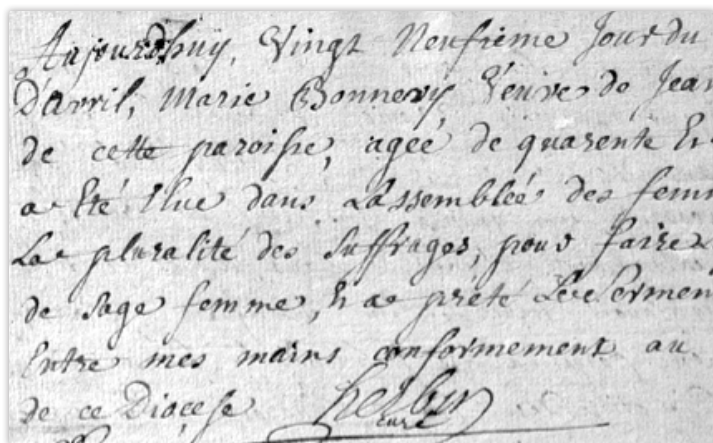 Aujourdhuy, Vingt Neufieme Jour du
D'avril, Marie Bonnevy, Veuve de Jean
de cette paroisse, ageé de quarente Et
a Eté Elue dans Lassembleé des femm
La pluralité des Suffrages, pour faire
de Sage femme, & a prété Le Sermen
Entre mes mains conformement au
de ce Diocese
curé